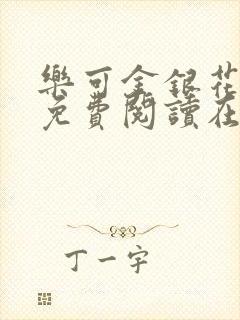 樂可金銀花
免費閱讀在
丁一字